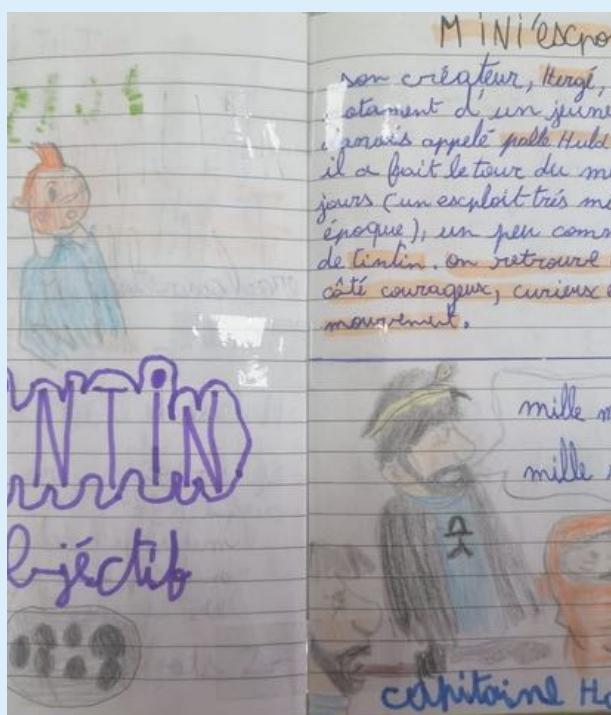 NTIN
bjéctif
MiNi'expo
son créateur, Hergé,
otament d'un jeune
danois appelé palle Huld
il a fait le tour du m
jours (un exploit trés m
époque), un peu comm
de tintin. on retrouve
côté courageux, curieux e
mouvement.
mille m
mille
capitaine Ha